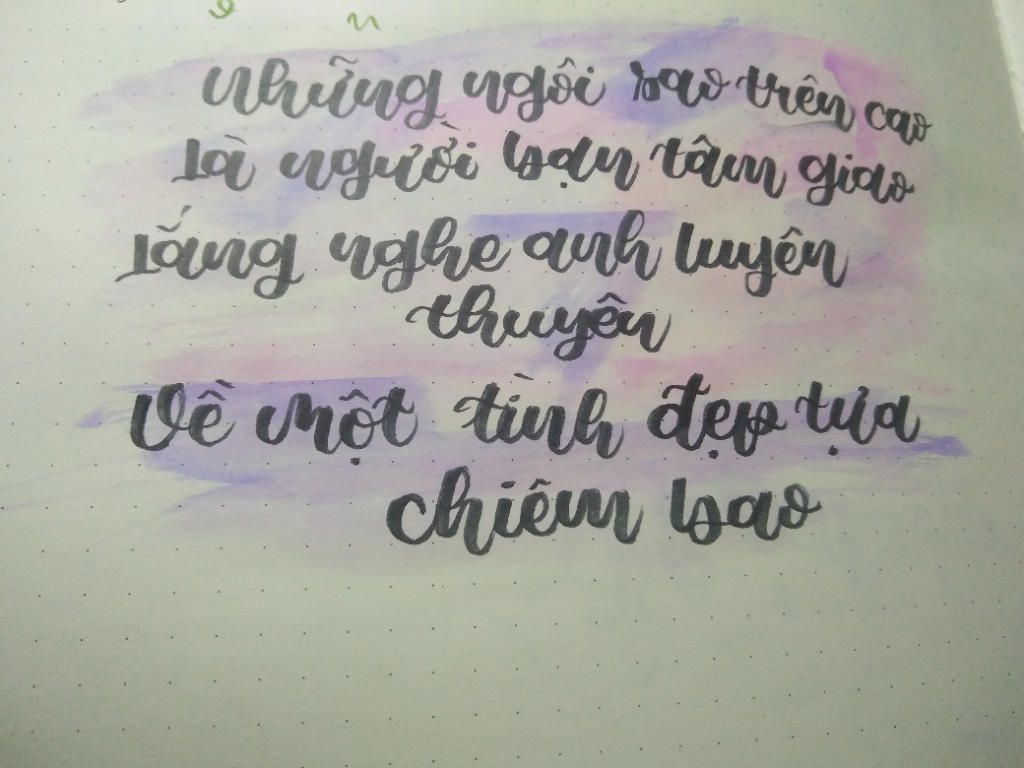 Những ngôi sao trên cao
Là người bạn tâm giao
Lắng nghe anh luyên
thuyên
Về một tình đẹp tựa
chiêm bao